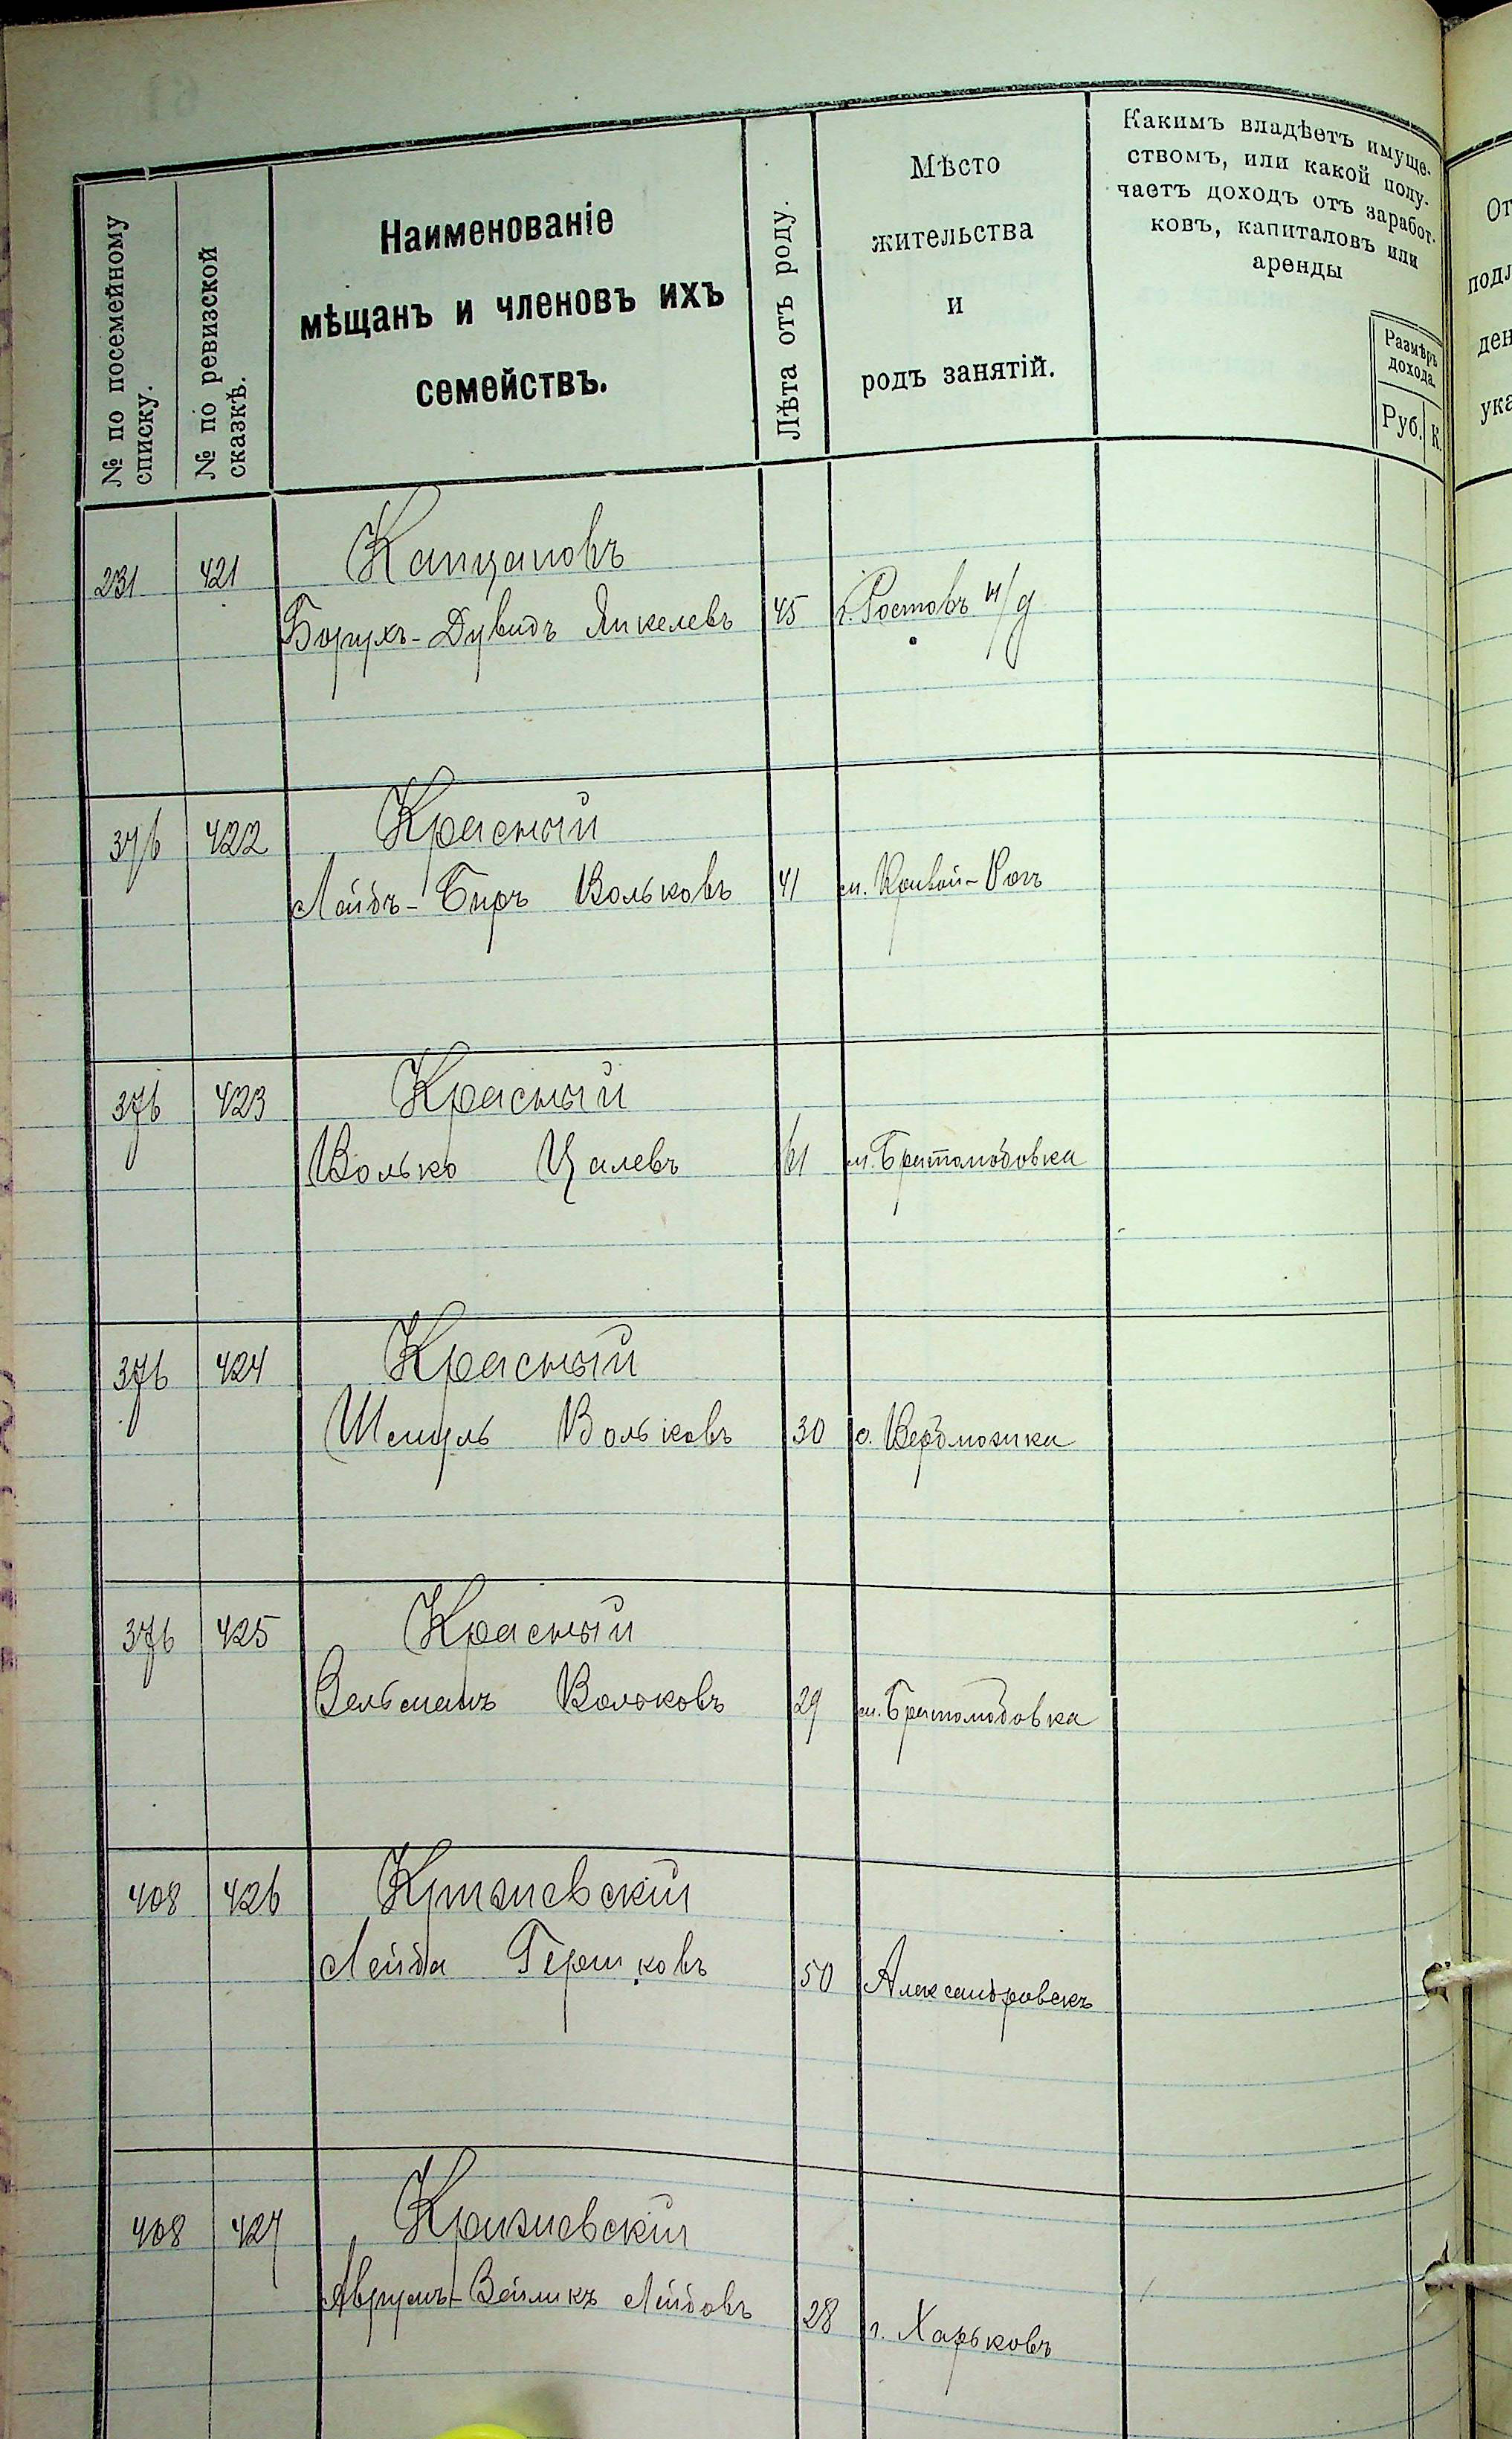 № по посемейному
списку.
№ по ревизской
сказкѣ.
Наименованіе
мѣщанъ и членовъ ихъ
семействъ.
Лѣта отъ роду.
Мѣсто
жительства
и
родъ занятій.
Какимъ владѣетъ имуще-
ствомъ, или какой полу-
чаетъ доходъ отъ заработ-
ковъ, капиталовъ или
аренды
Размѣръ
дохода.
Руб. К.
231 421 Капцановъ
Борухъ-Дувидъ Янкелевъ 45 г. Ростовъ н/д
376 422 Красный
Лейбъ-Беръ Вольковъ 41 м. Кривой-Рогъ
376 423 Красный
Волько Цалевъ 61 м. Братолюбовка
376 424 Красный
Шмуль Вольковъ 30 с. Верблюжка
376 425 Красный
Зельманъ Вольковъ 29 м. Братолюбовка
408 426
Лейба Гершковъ 50 Александровскъ
408 427
Аврумъ-Зейликъ Лейбовъ 28 г. Харьковъ
От
подл
ден
ука